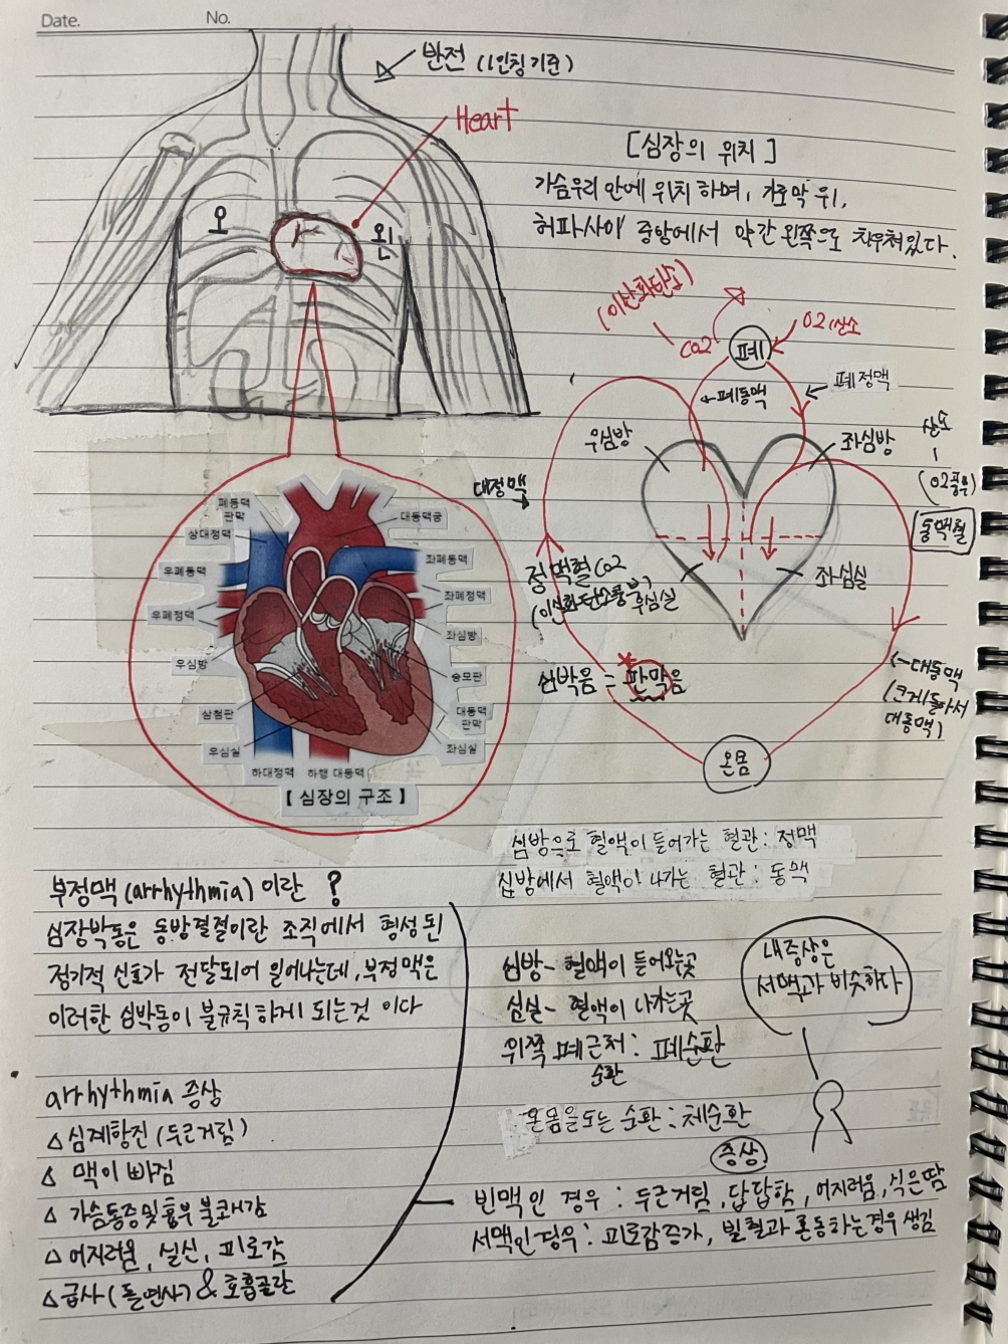 Date.
No.
반전 (1인칭 기준)
Heart
오
왼
[심장의 위치]
가슴우리 안에 위치 하며, 가로막 위,
허파사이 중앙에서 약간 왼쪽으로 치우쳐있다.
(이산화탄소)
CO2
O2 산소
폐
←폐동맥
폐정맥
우심방
좌심방
대정맥
산소
(O2풍부)
동맥혈
정맥혈 CO2
우심실
좌심실
심박음 = 판막음
←대동맥
(크게 돌아서
대동맥)
온몸
폐동맥
판막
상대정맥
우폐동맥
우폐정맥
우심방
삼첨판
우심실
하대정맥
하행 대동맥
대동맥궁
좌폐동맥
좌폐정맥
좌심방
승모판
대동맥
판막
좌심실
[ 심장의 구조 ]
심방으로 혈액이 들어가는 혈관 : 정맥
심방에서 혈액이 나가는 혈관 : 동맥
부정맥 (arrhythmia) 이란 ?
심장박동은 동방결절이란 조직에서 형성된
정기적 신호가 전달되어 일어나는데, 부정맥은
이러한 심박동이 불규칙하게 되는것 이다
심방 - 혈액이 들어오는곳
심실 - 혈액이 나가는곳
위쪽 폐근처 : 폐순환
순환
온몸을도는 순환 : 체순환
내증상은
서맥과 비슷하다
arrhythmia 증상
△ 심계항진 (두근거림)
△ 맥이 빠짐
△ 가슴통증및 흉부 불쾌감
△ 어지러움, 실신, 피로감
△ 급사 (돌연사) & 호흡곤란
증상
빈맥인 경우 : 두근거림, 답답함, 어지러움, 식은땀
서맥인 경우 : 피로감증가, 빈혈과 혼동하는경우 생김